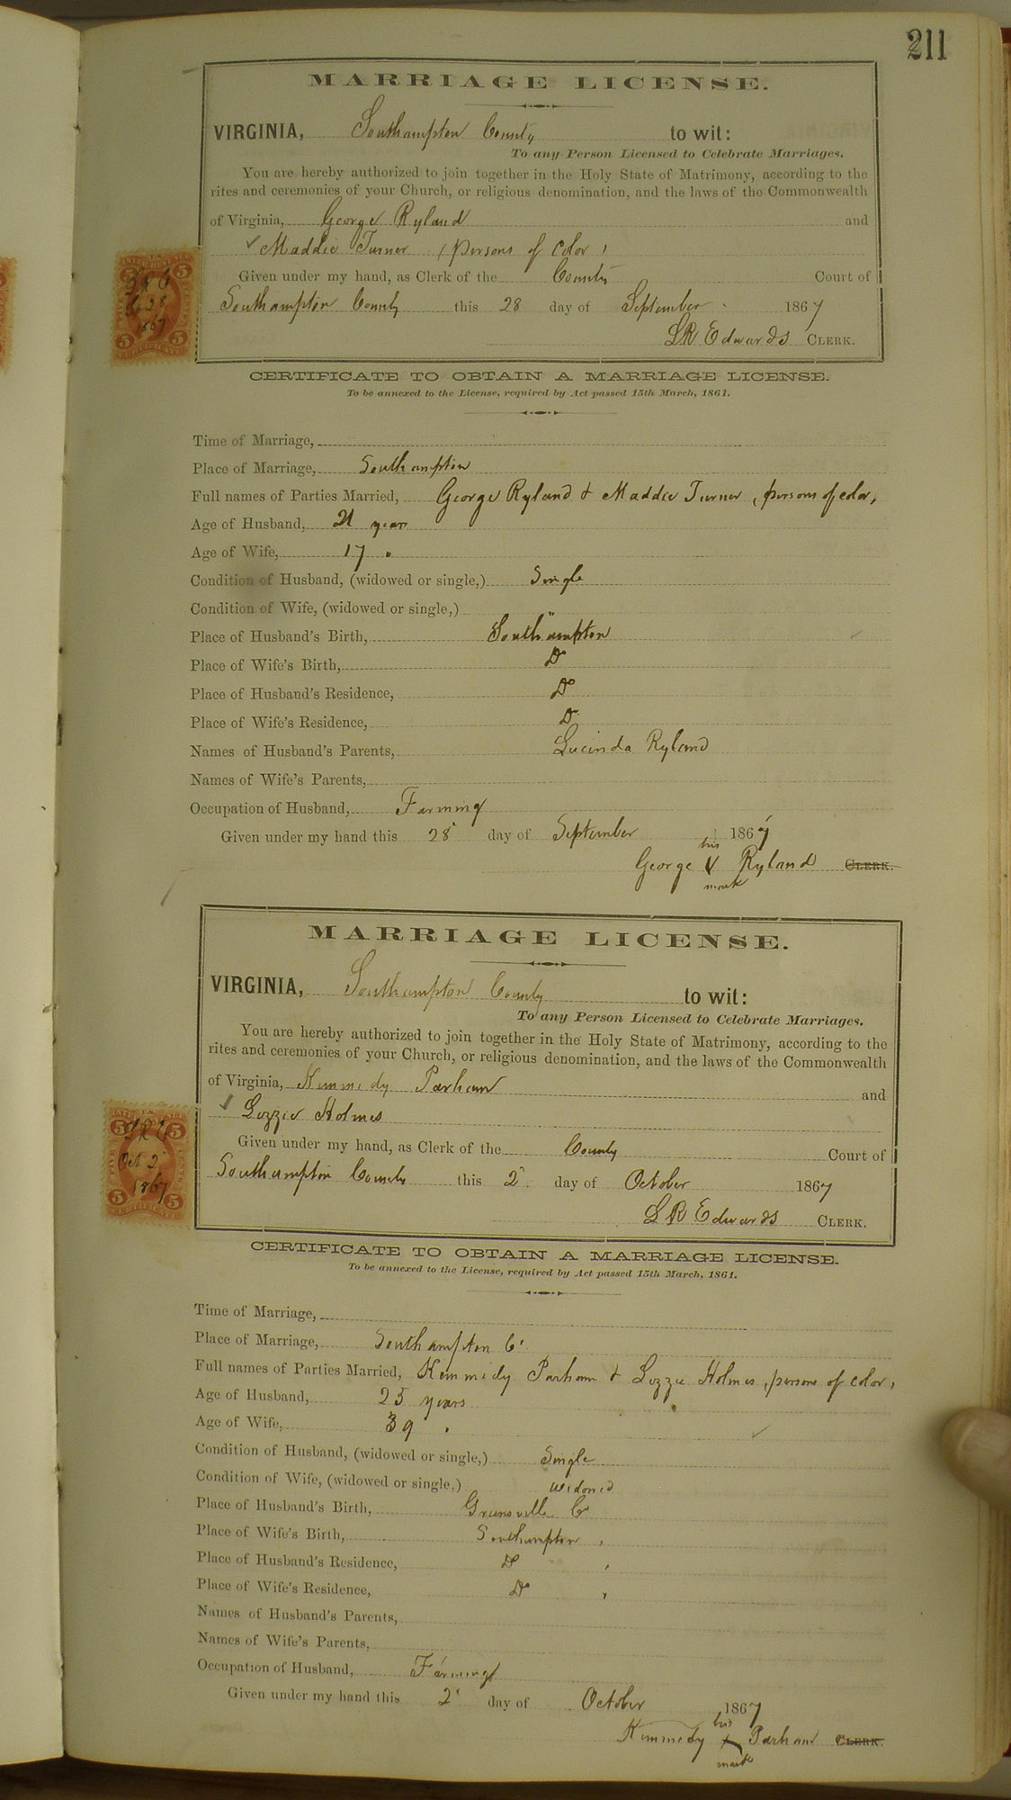 211
MARRIAGE LICENSE.
VIRGINIA, Southampton County to wit:
To any Person Licensed to Celebrate Marriages.
You are hereby authorized to join together in the Holy State of Matrimony, according to the
rites and ceremonies of your Church, or religious denomination, and the laws of the Commonwealth
of Virginia, George Ryland and
Maddie Turner (persons of color)
Given under my hand, as Clerk of the County Court of
Southampton County this 28 day of September 1867
LR Edwards CLERK.
5 5
1867
CERTIFICATE TO OBTAIN A MARRIAGE LICENSE.
To be annexed to the License, required by Act passed 15th March, 1861.
Time of Marriage,
Place of Marriage, Southampton
Full names of Parties Married, George Ryland & Maddie Turner, persons of color,
Age of Husband, 21 years
Age of Wife, 17 "
Condition of Husband, (widowed or single,) Single
Condition of Wife, (widowed or single,) "
Place of Husband's Birth, Southampton
Place of Wife's Birth, Do
Place of Husband's Residence, Do
Place of Wife's Residence, Do
Names of Husband's Parents, Lucinda Ryland
Names of Wife's Parents,
Occupation of Husband, Farming
Given under my hand this 28 day of September 1867
his
George X Ryland CLERK.
mark
MARRIAGE LICENSE.
VIRGINIA, Southampton County to wit:
To any Person Licensed to Celebrate Marriages.
You are hereby authorized to join together in the Holy State of Matrimony, according to the
rites and ceremonies of your Church, or religious denomination, and the laws of the Commonwealth
of Virginia, Kennedy Parham and
Lizzie Holmes
Given under my hand, as Clerk of the County Court of
Southampton County this 2 day of October 1867
LR Edwards CLERK.
5 5
Oct 2
1867
5 5
CERTIFICATE TO OBTAIN A MARRIAGE LICENSE.
To be annexed to the License, required by Act passed 15th March, 1861.
Time of Marriage,
Place of Marriage, Southampton Co
Full names of Parties Married, Kennedy Parham & Lizzie Holmes, persons of color,
Age of Husband, 25 years
Age of Wife, 39 "
Condition of Husband, (widowed or single,) Single
Condition of Wife, (widowed or single,) widowed
Place of Husband's Birth, Greensville Co
Place of Wife's Birth, Southampton "
Place of Husband's Residence, Do "
Place of Wife's Residence, Do "
Names of Husband's Parents,
Names of Wife's Parents,
Occupation of Husband, Farming
Given under my hand this 2 day of October 1867
his
Kennedy X Parham CLERK.
mark